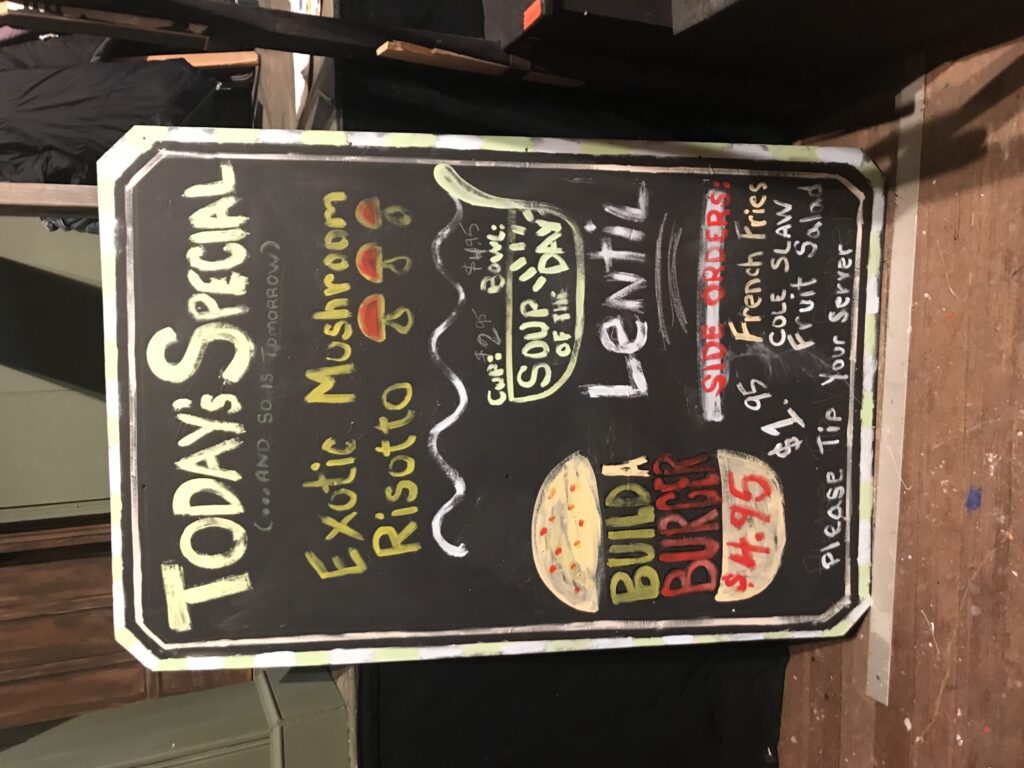 TODAY'S SPECIAL
(...AND SO IS TOMORROW)
Exotic Mushroom
Risotto
CUP: $2.95 BOWL: $4.95
SOUP
OF THE DAY
LENTIL
BUILD A
BURGER
$4.95
SIDE ORDERS:
$1.95
French Fries
COLE SLAW
Fruit Salad
Please Tip Your Server